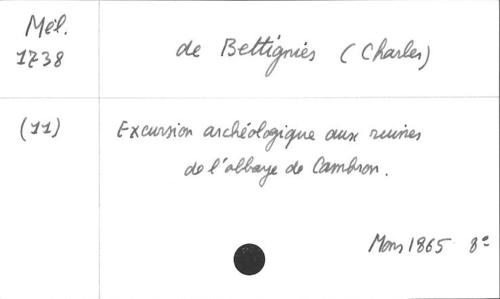 Mél.
1738
de Bettignies (Charles)
(11)
Excursion archéologique aux ruines
de l'abbaye de Cambron.
Mons 1865 8º